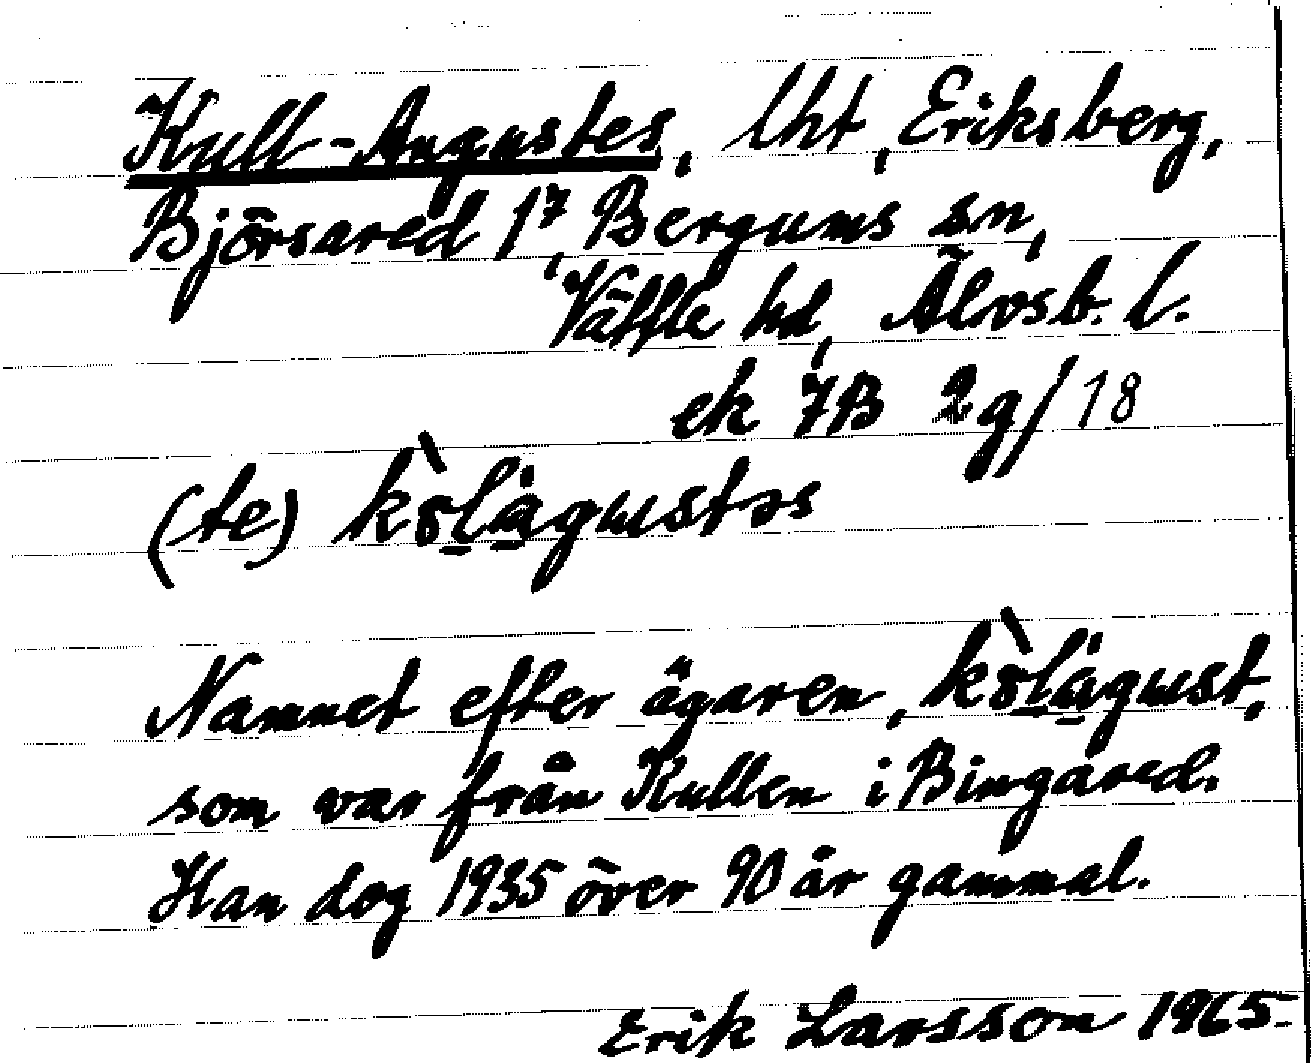 Kull-Augustes, lht, Eriksberg,
Björsared 1⁷, Bergums sn,
Vättle hd, Älvsb. l.
ek 7B 2g/18
(te) kòlagustəs
Namnet efter ägaren, kòlagust,
som var från Kullen i Bingared.
Han dog 1935 över 90 år gammal.
Erik Larsson 1965